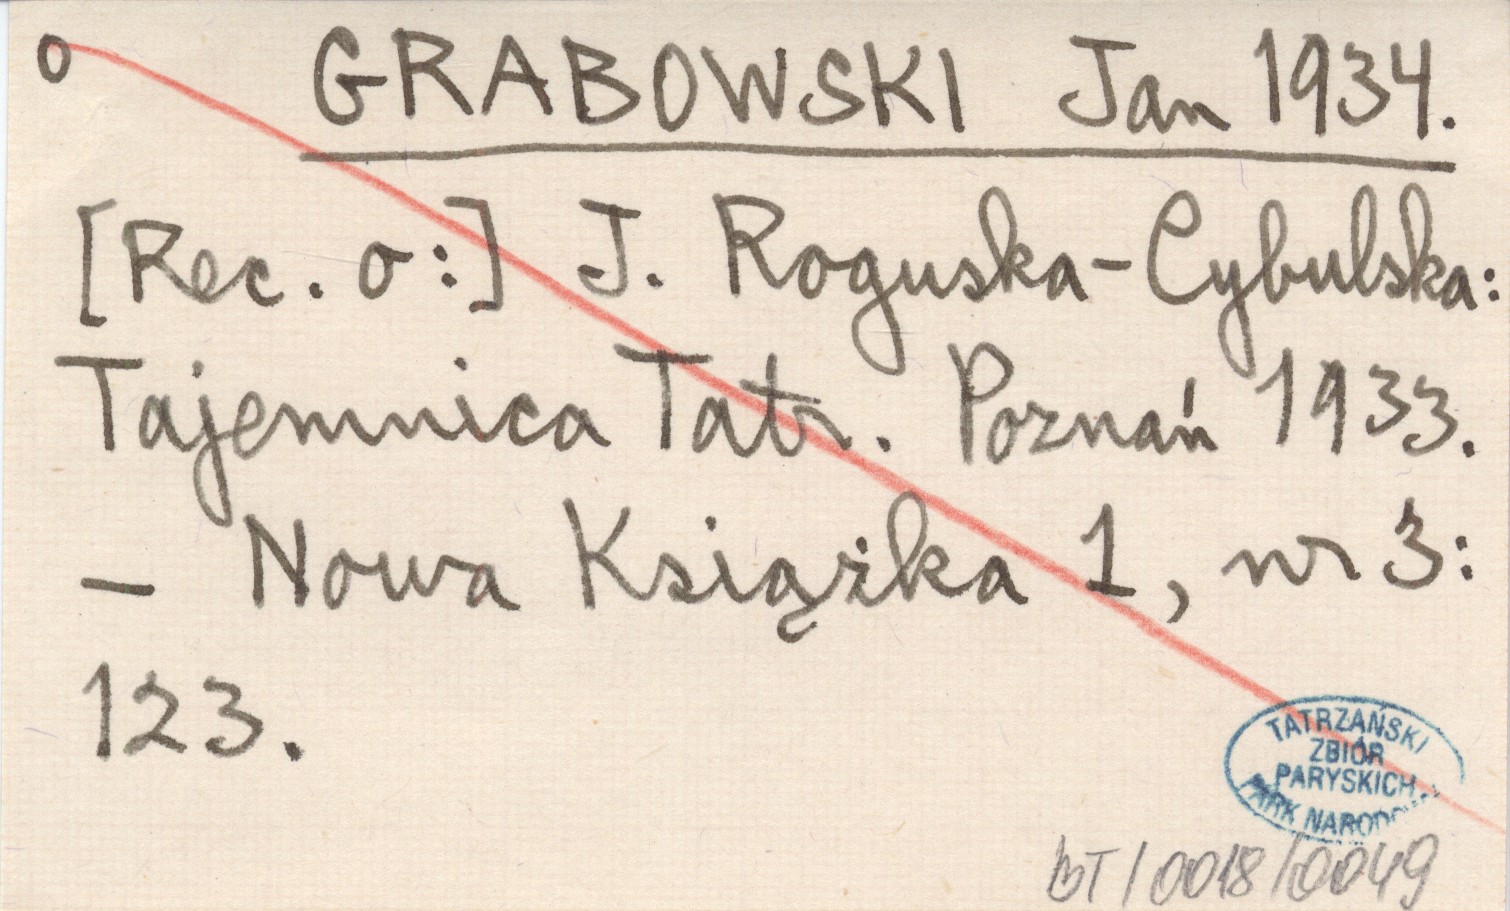 o GRABOWSKI Jan 1934.
[Rec. o:] J. Roguska-Cybulska:
Tajemnica Tatr. Poznań 1933.
– Nowa Książka 1, nr 3:
123.
TATRZAŃSKI
ZBIÓR
PARYSKICH
PARK NARODOWY
BT/0018/0049